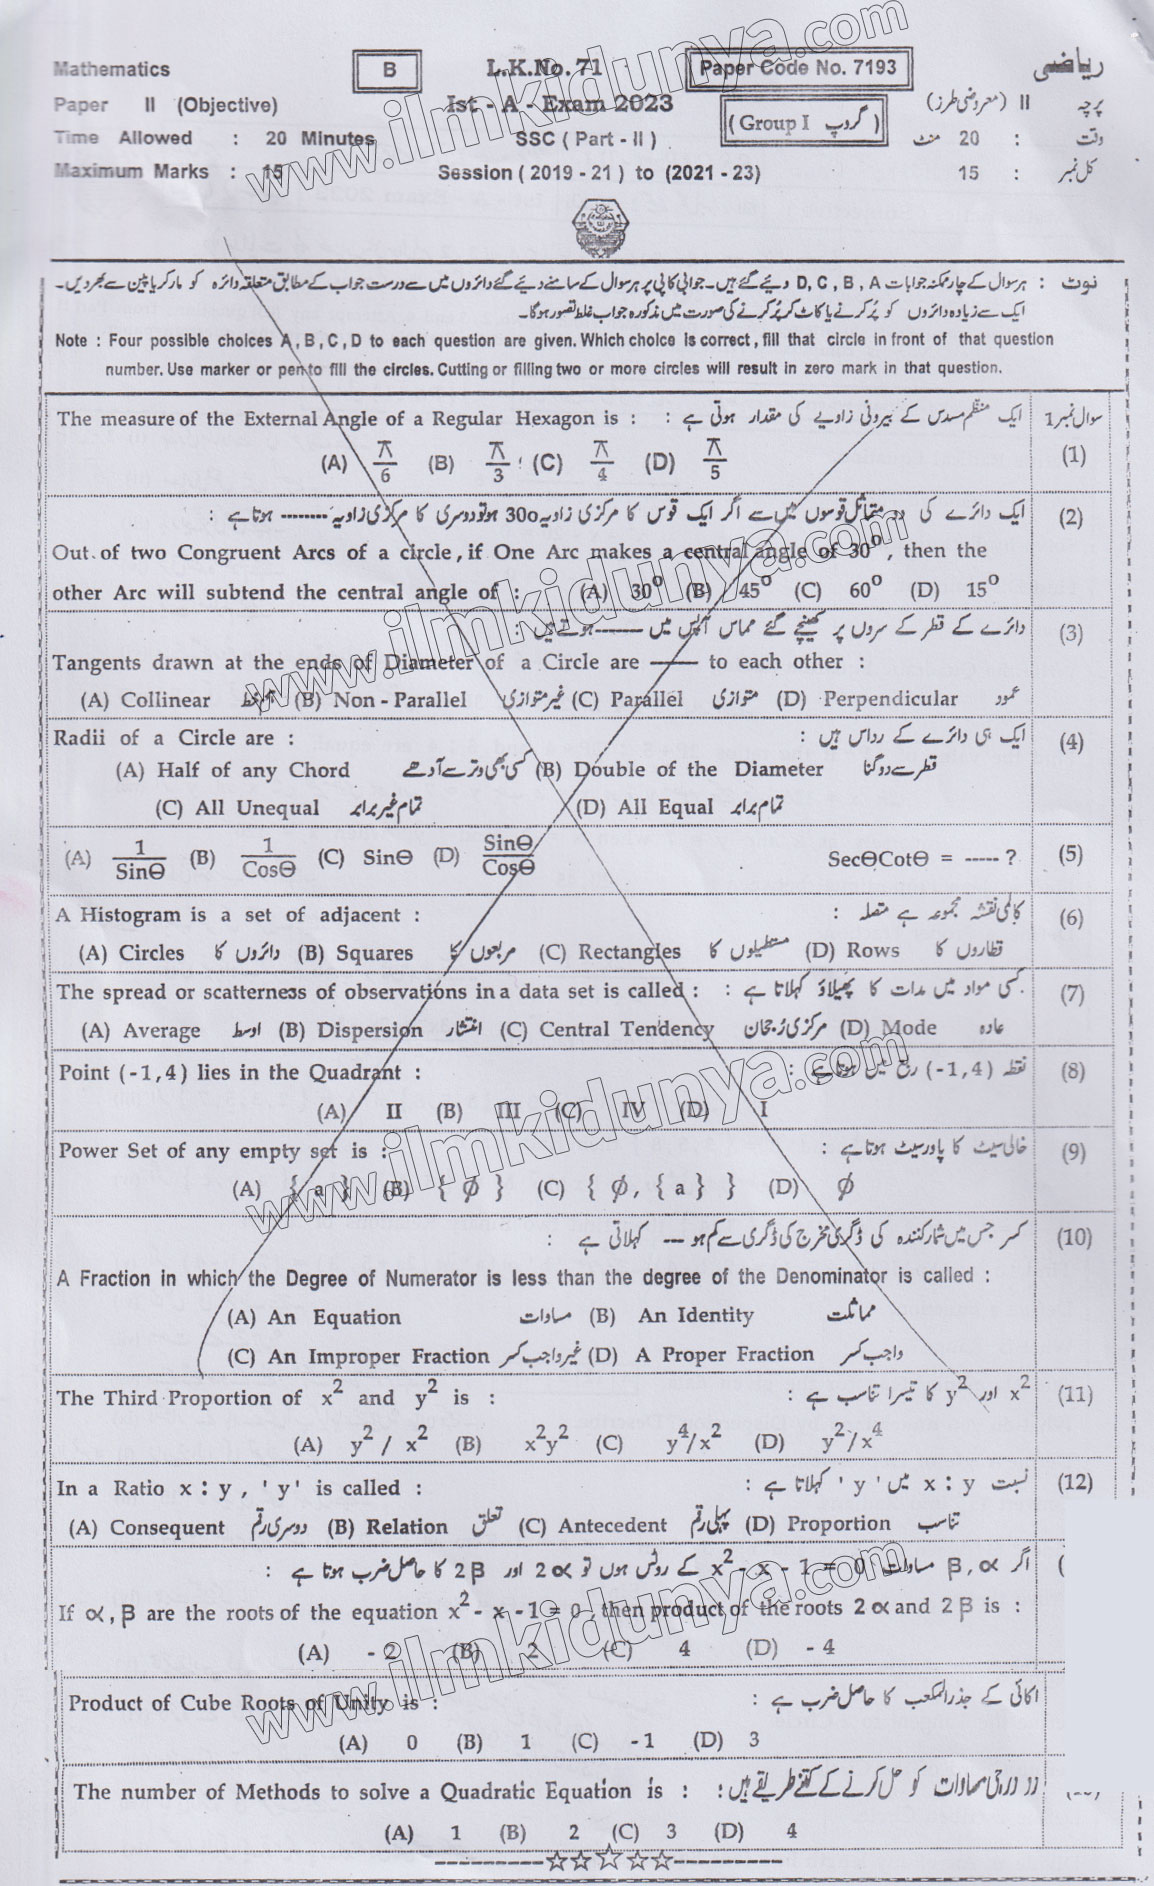 Mathematics B L.K.No.71 Paper Code No. 7193 ریاضی
Paper II (Objective) Ist - A - Exam 2023 (Group I گروپ) پرچہ II (معروضی طرز)
Time Allowed : 20 Minutes SSC ( Part - II ) وقت : 20 منٹ
Maximum Marks : 15 Session ( 2019 - 21 ) to (2021 - 23) کل نمبر : 15
نوٹ : ہر سوال کے چار ممکنہ جوابات D, C, B, A دیئے گئے ہیں۔ جوابی کاپی پر ہر سوال کے سامنے دیئے گئے دائروں میں سے درست جواب کے مطابق متعلقہ دائرہ کو مارکر یا پین سے بھر دیں۔
ایک سے زیادہ دائروں کو پُر کرنے یا کاٹ کر پُر کرنے کی صورت میں مذکورہ جواب غلط تصور ہوگا۔
Note : Four possible choices A , B , C , D to each question are given. Which choice is correct , fill that circle in front of that question
number. Use marker or pen to fill the circles. Cutting or filling two or more circles will result in zero mark in that question.
The measure of the External Angle of a Regular Hexagon is : ایک منظم مسدس کے بیرونی زاویے کی مقدار ہوتی ہے : سوال نمبر 1
(A) π/6 (B) π/3 (C) π/4 (D) π/5 (1)
ایک دائرے کی دو متماثل قوسوں میں سے اگر ایک قوس کا مرکزی زاویہ 30o ہو تو دوسری کا مرکزی زاویہ -------- ہوتا ہے : (2)
Out of two Congruent Arcs of a circle , if One Arc makes a central angle of 30° , then the
other Arc will subtend the central angle of : (A) 30° (B) 45° (C) 60° (D) 15°
دائرے کے قطر کے سروں پر کھینچے گئے مماس آپس میں ------ ہوتے ہیں : (3)
Tangents drawn at the ends of Diameter of a Circle are ------ to each other :
(A) Collinear ہم خط (B) Non - Parallel غیر متوازی (C) Parallel متوازی (D) Perpendicular عمود
Radii of a Circle are : ایک ہی دائرے کے رداس ہیں : (4)
(A) Half of any Chord کسی بھی وتر سے آدھے (B) Double of the Diameter قطر سے دوگنا
(C) All Unequal تمام غیر برابر (D) All Equal تمام برابر
(A) 1/Sinθ (B) 1/Cosθ (C) Sinθ (D) Sinθ/Cosθ SecθCotθ = ----- ? (5)
A Histogram is a set of adjacent : کالمی نقشہ مجموعہ ہے متصلہ : (6)
(A) Circles دائروں کا (B) Squares مربعوں کا (C) Rectangles مستطیلوں کا (D) Rows قطاروں کا
The spread or scatterness of observations in a data set is called : کسی مواد میں مدات کا پھیلاؤ کہلاتا ہے : (7)
(A) Average اوسط (B) Dispersion انتشار (C) Central Tendency مرکزی رُجحان (D) Mode عادہ
Point (-1,4) lies in the Quadrant : نقطہ (-1,4) ربع میں ہوتا ہے : (8)
(A) II (B) III (C) IV (D) I
Power Set of any empty set is : خالی سیٹ کا پاور سیٹ ہوتا ہے : (9)
(A) { a } (B) { ∅ } (C) { ∅, { a } } (D) ∅
کسر جس میں شمار کنندہ کی ڈگری مخرج کی ڈگری سے کم ہو --- کہلاتی ہے : (10)
A Fraction in which the Degree of Numerator is less than the degree of the Denominator is called :
(A) An Equation مساوات (B) An Identity مماثلت
(C) An Improper Fraction غیر واجب کسر (D) A Proper Fraction واجب کسر
The Third Proportion of x² and y² is : x² اور y² کا تیسرا تناسب ہے : (11)
(A) y² / x² (B) x²y² (C) y⁴/x² (D) y²/x⁴
In a Ratio x : y , ' y' is called : نسبت x : y میں ' y ' کہلاتا ہے : (12)
(A) Consequent دوسری رقم (B) Relation تعلق (C) Antecedent پہلی رقم (D) Proportion تناسب
اگر β , α مساوات x² - x - 1 = 0 کے روٹس ہوں تو 2α اور 2β کا حاصل ضرب ہوتا ہے : (
If α , β are the roots of the equation x² - x - 1 = 0 , then product of the roots 2α and 2β is :
(A) - 2 (B) 2 (C) 4 (D) - 4
Product of Cube Roots of Unity is : اکائی کے جذر المکعب کا حاصل ضرب ہے :
(A) 0 (B) 1 (C) -1 (D) 3
The number of Methods to solve a Quadratic Equation is : دو درجی مساوات کو حل کرنے کے کتنے طریقے ہیں :
(A) 1 (B) 2 (C) 3 (D) 4
www.ilmkidunya.com
www.ilmkidunya.com
www.ilmkidunya.com
www.ilmkidunya.com